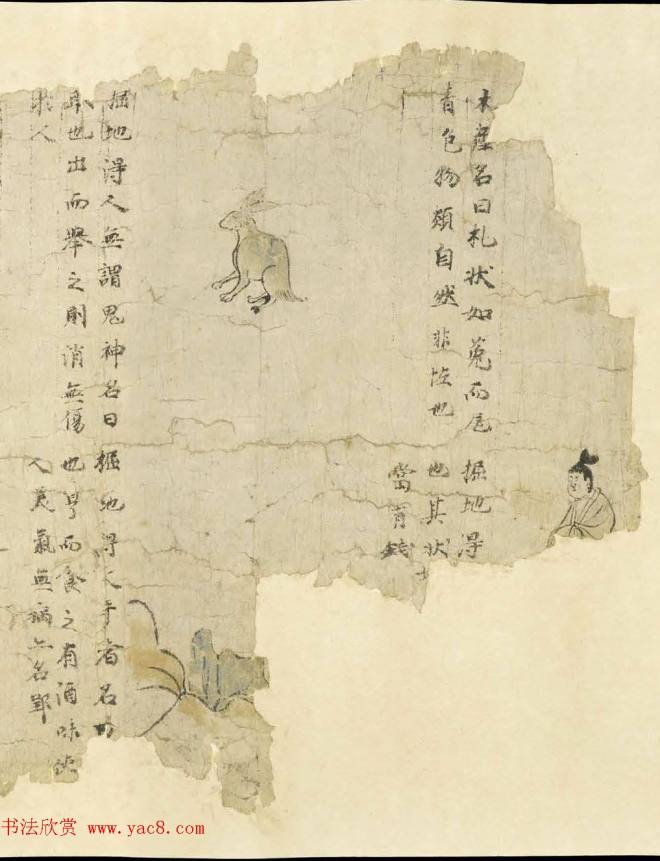 木產名曰札狀如菟而尾
青色物類自然非恠也
掘地得
也其狀
當有錢
掘地得人無謂鬼神名曰
掘地得人手者名曰
也出而舉之則消無傷
也亨而食之有酒味
人美氣無病
书法欣赏 www.yac8.com